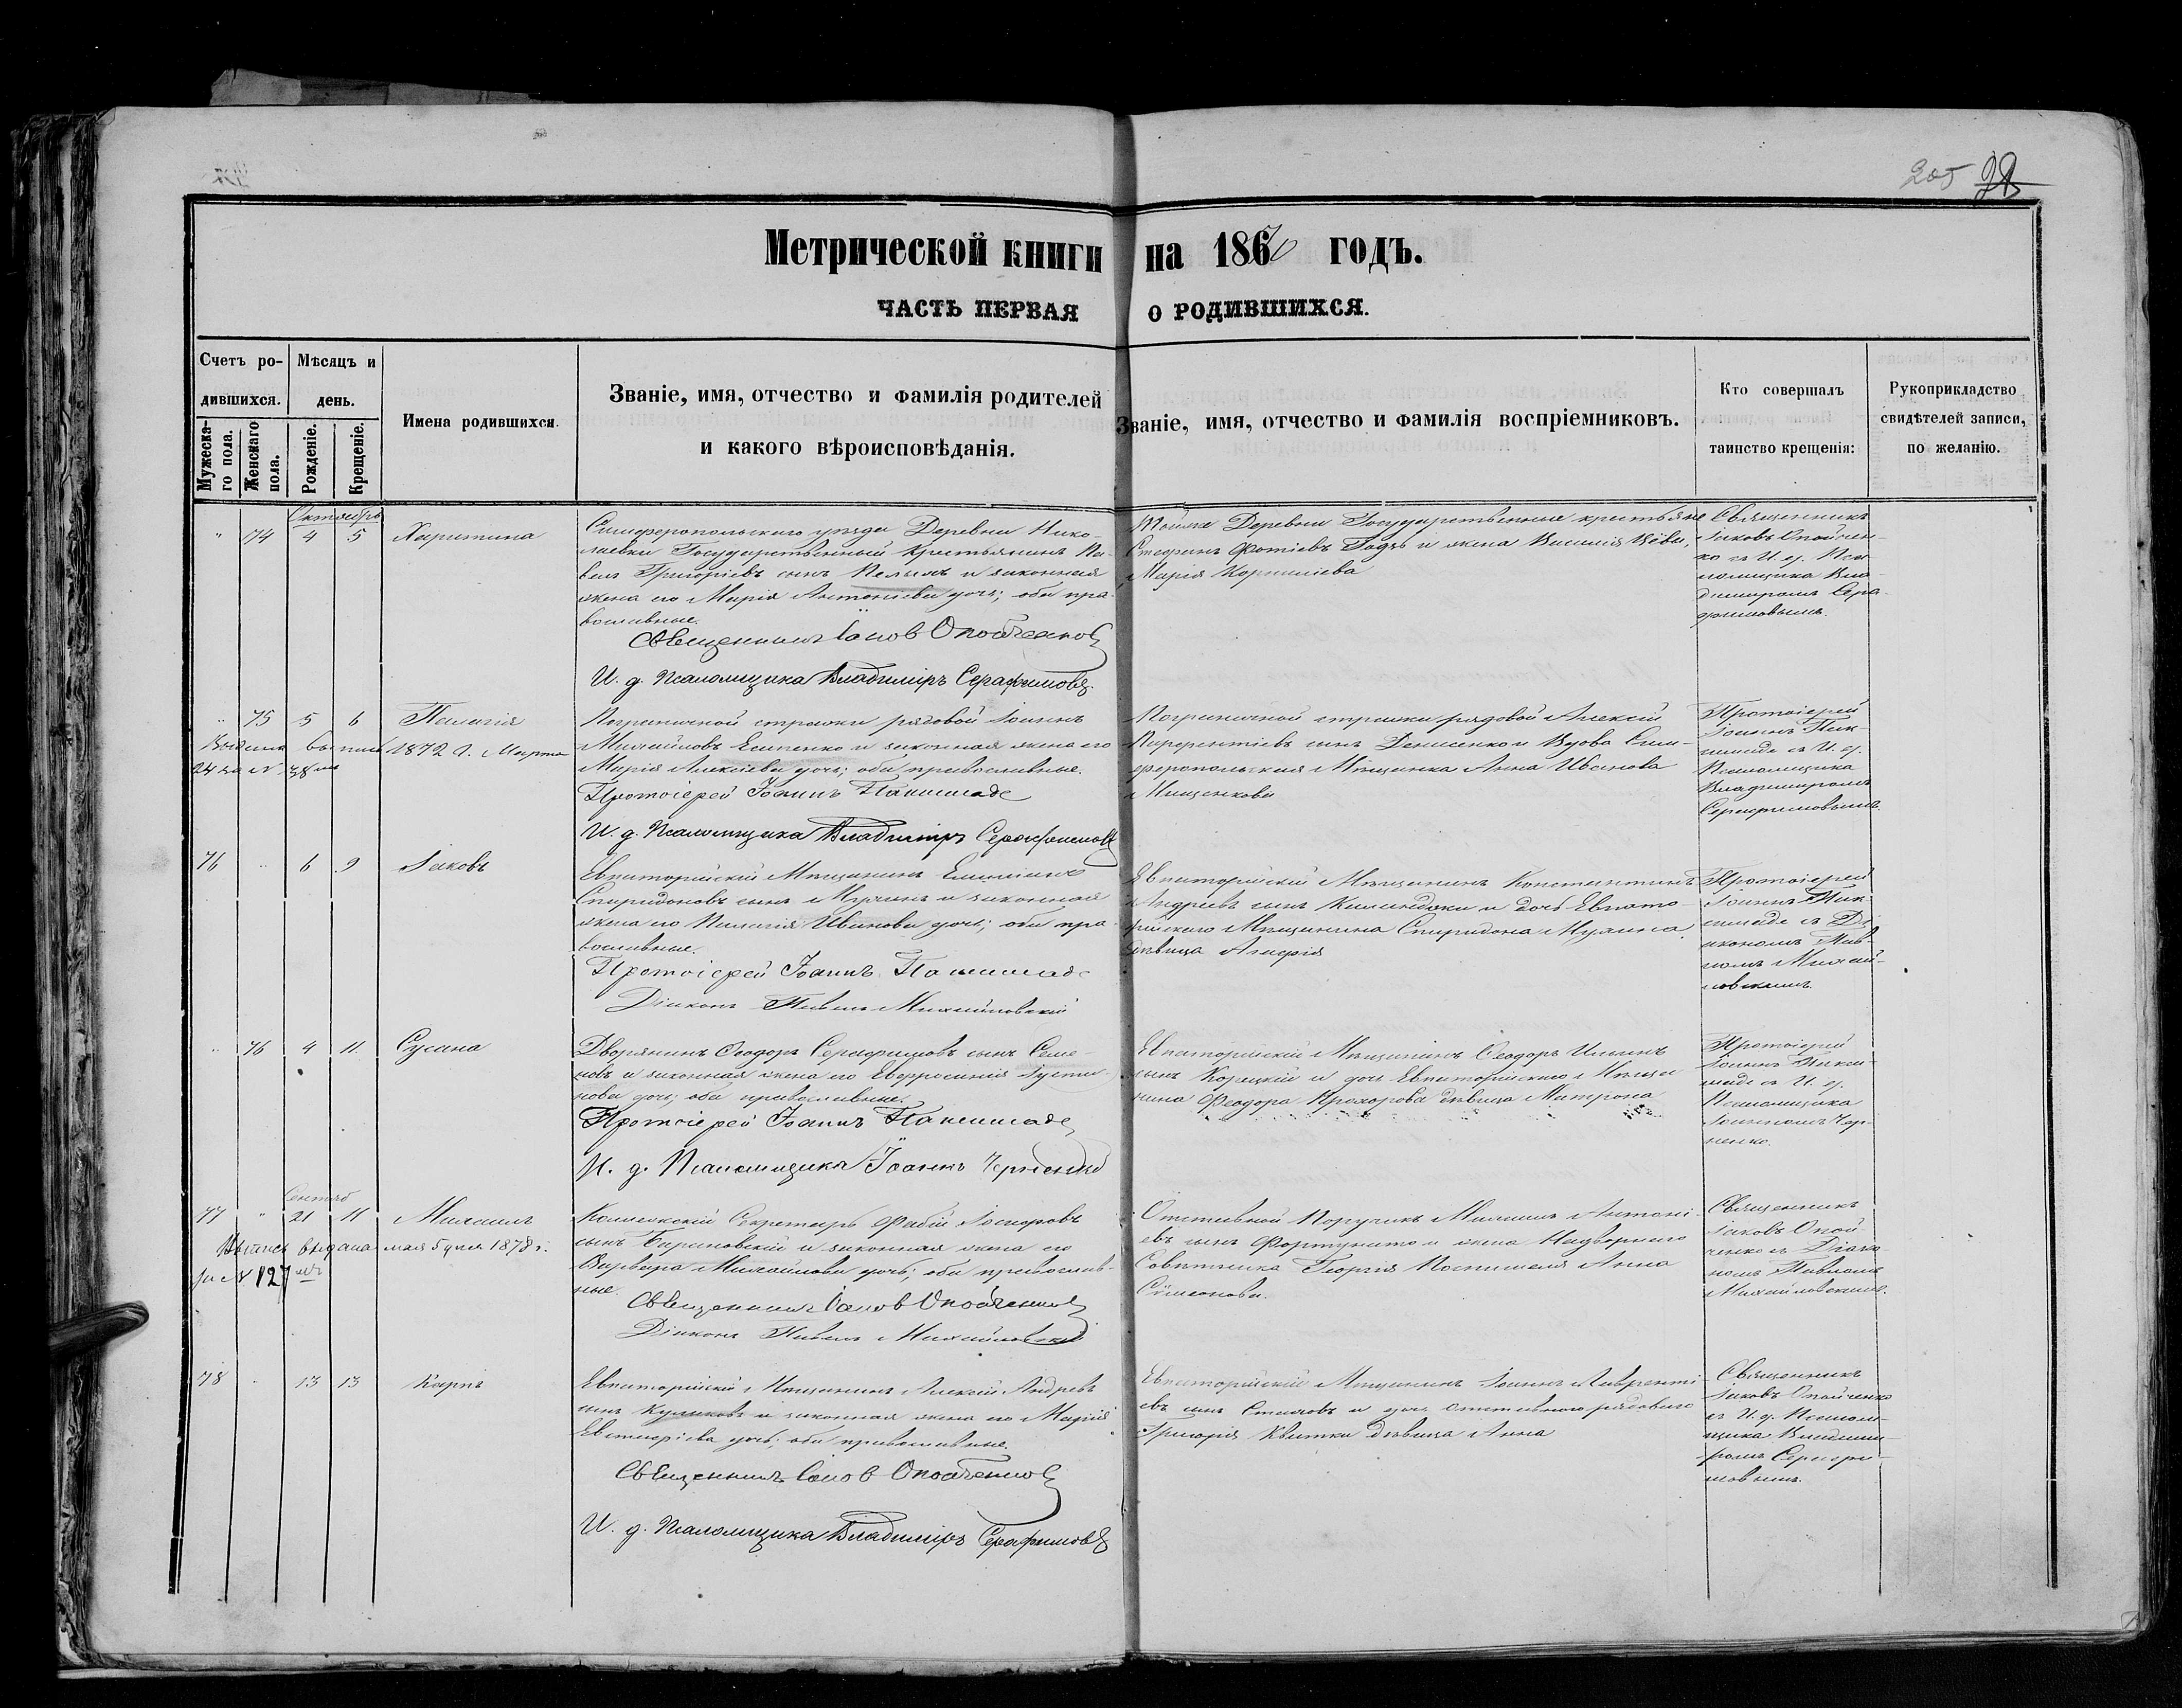 205 22
Метрической книги на 1870 годъ.
ЧАСТЬ ПЕРВАЯ О РОДИВШИХСЯ.
Счетъ родившихся.
Мужескаго пола.
Женскаго пола.
Мѣсяцъ и день.
Рожденіе.
Крещеніе.
Имена родившихся.
Званіе, имя, отчество и фамилія родителей
и какого вѣроисповѣданія.
Званіе, имя, отчество и фамилія воспріемниковъ.
Кто совершалъ
таинство крещенія:
Рукоприкладство
свидѣтелей записи,
по желанію.
Октябрь
" 74 4 5 Харитина
Симферопольскаго уѣзда Деревни Нико-
лаевки Государственный крестьянинъ Па-
велъ Григоріевъ сынъ и законная
жена его Марія Антоніева дочь; оба пра-
вославные.
Священникъ Іаковъ Опойченко
И. д. Псаломщика Владиміръ Серафимовъ.
Тойже Деревни Государственные крестьяне
Стефанъ Фотіевъ и жена Василія
Марія Корниліева
Священникъ
Іаковъ Опойчен-
ко съ И. д. Пса-
ломщика Вла-
диміромъ Сера-
фимовымъ.
" 75 5 6 Пелагія
1872 г. Марта
24 за №
Пограничной стражи рядовой Іоаннъ
Михайловъ Есипенко и законная жена его
Марія Алексіева дочь; оба православные.
Протоіерей Іоаннъ
И. д. Псаломщика Владиміръ Серафимовъ
Пограничной стражи рядовой Алексій
сынъ Денисенко и Вдова Сим-
феропольская Мѣщанка Анна Иванова
Мищенкова
Протоіерей
Іоаннъ
съ И. д.
Псаломщика
Владиміромъ
Серафимовымъ.
76 " 6 9 Іаковъ
Евпаторійскій Мѣщанинъ
Спиридоновъ сынъ и законная
жена его Пелагія Иванова дочь; оба пра-
вославные.
Протоіерей Іоаннъ
Діаконъ Павелъ Михайловскій
Евпаторійскій Мѣщанинъ Константинъ
Андреевъ сынъ и дочь Евпато-
рійскаго Мѣщанина Спиридона
дѣвица
Протоіерей
Іоаннъ
съ Ді-
акономъ Пав-
ломъ Михай-
ловскимъ.
" 76 4 11 Сусана
Дворянинъ Ѳеодоръ Серафимовъ сынъ Семе-
новъ и законная жена его Евфросинія Іусти-
нова дочь; оба православные.
Протоіерей Іоаннъ
И. д. Псаломщика Іоаннъ Черненко
Евпаторійскій Мѣщанинъ Ѳеодоръ Ильинъ
сынъ Корецкій и дочь Евпаторійскаго Мѣща-
нина Феодора Прохорова дѣвица Матрона
Протоіерей
Іоаннъ
съ И. д.
Псаломщика
Іоанномъ Чер-
ненко.
Сентяб
77 " 21 11 Михаилъ
Выпись выдана мая 5 дня 1878 г.
за № 127
Коллежскій Секретарь Фабій
сынъ и законная жена его
Варвара Михайлова дочь; оба православ-
ные.
Священникъ Іаковъ Опойченко
Діаконъ Павелъ Михайловскій
Отставной Поручикъ Михаилъ Антоні-
евъ сынъ Фортунато и жена Надворнаго
Совѣтника Георгія Анна
Симеонова.
Священникъ
Іаковъ Опой-
ченко съ Діако-
номъ Павломъ
Михайловскимъ.
78 " 13 13 Карпъ
Евпаторійскій Мѣщанинъ Алексій Андреевъ
сынъ Куликовъ и законная жена его Марія
Евстафіева дочь; оба православные
Священникъ Іаковъ Опойченко
И. д. Псаломщика Владиміръ Серафимовъ
Евпаторійскій Мѣщанинъ Іоаннъ Лавренті-
евъ сынъ и дочь отставнаго рядоваго
Григорія Квитки дѣвица Анна
Священникъ
Іаковъ Опойченко
съ И. д. Псалом-
щика Владими-
ромъ Серафи-
мовымъ.